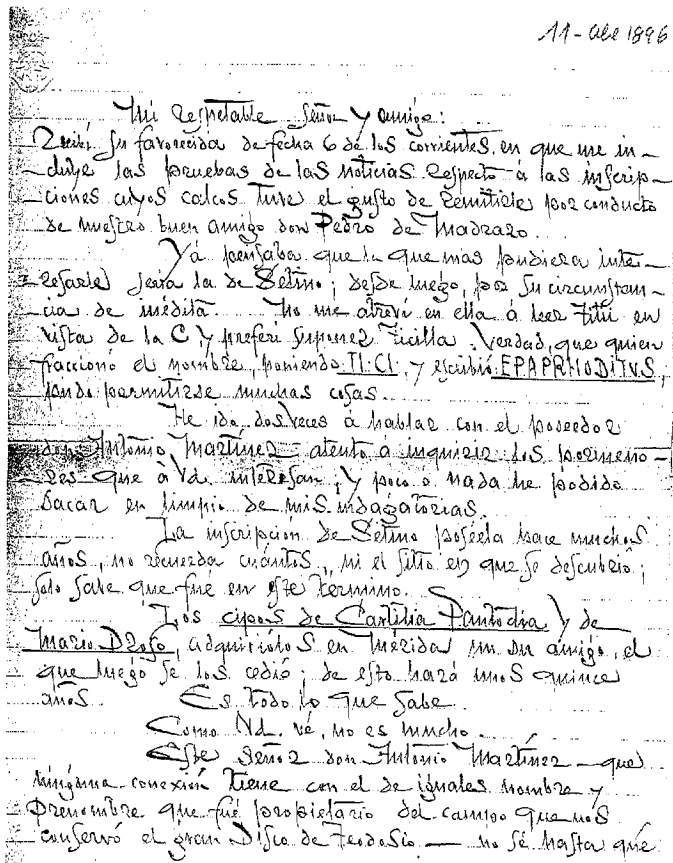 11 - Abr 1896
Mi respetable Señor y amigo:
Recibí su favorecida de fecha 6 de los corrientes, en que me in-
cluye las pruebas de las noticias respecto á las inscrip-
ciones cuyos calcos tuve el gusto de remitirle por conducto
de nuestro buen amigo don Pedro de Madrazo.
Yá pensaba que la que mas pudiera inte-
resarle, sería la de Sétimo; desde luego, por su circunstan-
cia de inédita. No me atreví en ella á leer Titii en
vista de la C y preferí suponer Ticilla. Verdad, que quien
fraccionó el nombre, poniendo TI·CI·, y escribió EPAPRHODITVS,
pudo permitirse muchas cosas.
He ido dos veces á hablar con el poseedor
don Antonio Martínez atento á inquirir los pormeno-
res que á Vd. interesan; y poco o nada he podido
sacar en limpio de mis indagatorias.
La inscripción de Sétimo poséela hace muchos
años, no recuerda cuántos, ni el sitio en que se descubrió;
solo sabe que fué en este término.
Los cipos de Cartilia Pantodia y de
Mario Droso, adquiriólos en Mérida un su amigo, el
que luego se los cedió; de esto hará unos quince
años. Es todo lo que sabe.
Como Vd. vé, no es mucho.
Este Señor don Antonio Martínez - que
ninguna conexión tiene con el de iguales nombre y
prenombre que fué propietario del campo que nos
conservó el gran Disco de Teodosio - no sé hasta qué